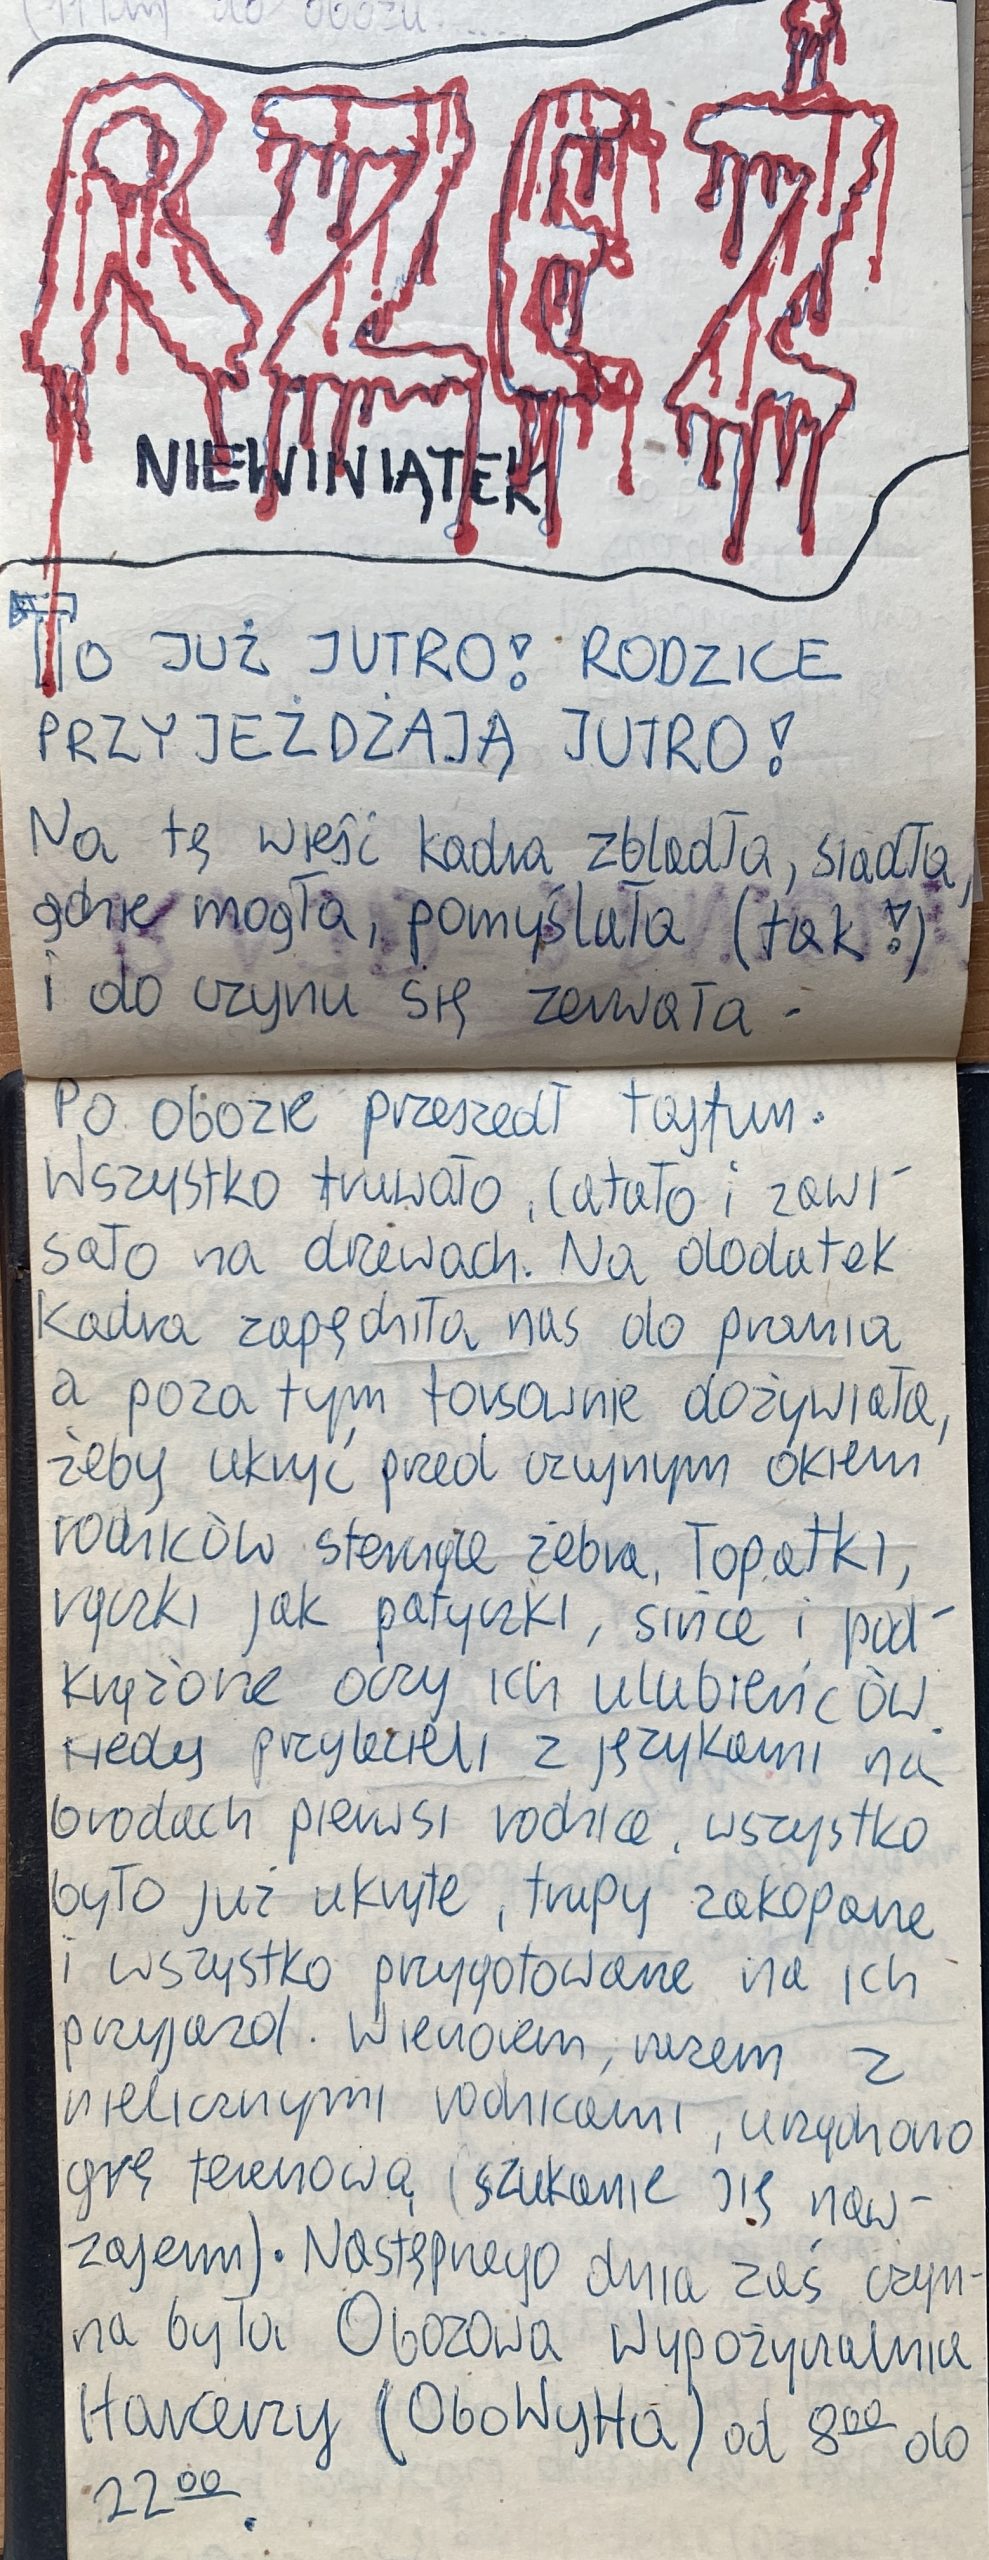 (11 km) do obozu.....
RZEŹ
NIEWINIĄTEK
TO JUŻ JUTRO! RODZICE
PRZYJEŻDŻAJĄ JUTRO!
Na tę wieść kadra zbladła, siadła,
gdzie mogła, pomyślała (tak!)
i do czynu się zerwała -
Po obozie przeszedł tajfun.
Wszystko fruwało, latało i zawi-
sało na drzewach. Na dodatek
kadra zapędziła nas do prania
a poza tym forsownie dożywiała,
żeby ukryć przed czujnym okiem
rodziców sterczące żebra, łopatki,
rączki jak patyczki, sińce i pod-
krążone oczy ich ulubieńców.
Kiedy przybiegli z językami na
brodach pierwsi rodzice, wszystko
było już ukryte, trupy zakopane
i wszystko przygotowane na ich
przyjazd. Wieczorem, razem z
nielicznymi rodzicami, urządzono
grę terenową (szukanie się naw-
zajem). Następnego dnia zaś czyn-
na była Obozowa Wypożyczalnia
Harcerzy (OboWyHa) od 8<sup>00</sup> do
22<sup>00</sup>.